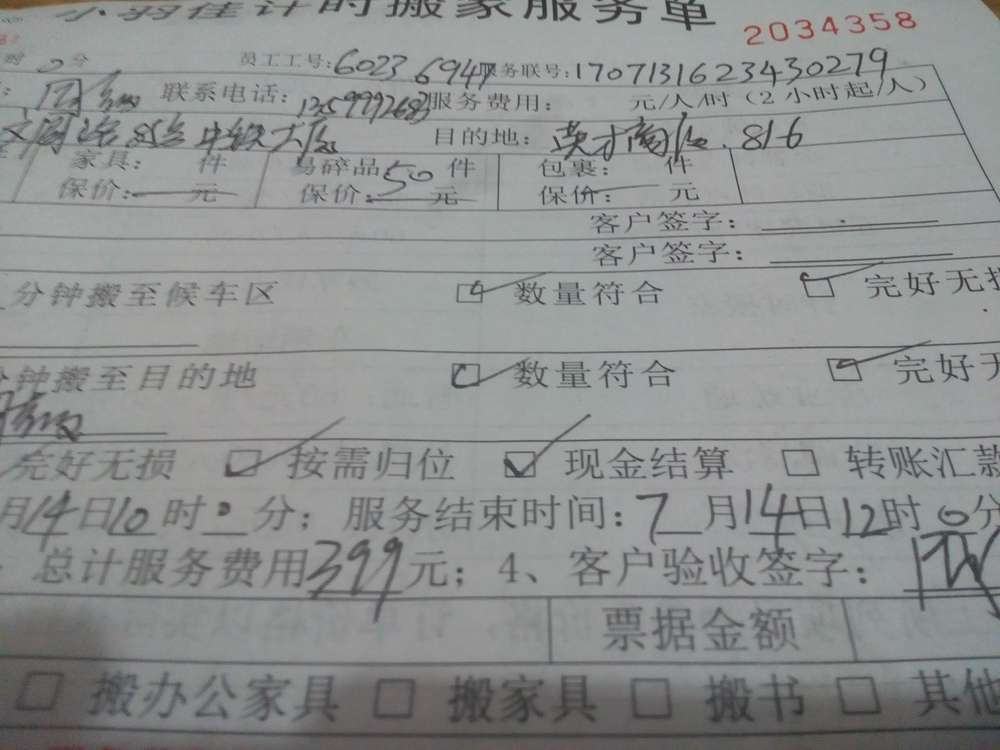 小羽佳计时搬家服务单
2034358
时 0 分 员工工号:6023 6947 服务联号:1707131623430279
联系电话: 服务费用: 元/人/时（2小时起/人）
中铁大厦 目的地: 英才商厦 816
家具: 件 易碎品 50 件 包裹: 件
保价: 元 保价: 元 保价: 元
客户签字:
客户签字:
分钟搬至候车区 数量符合 完好无损
分钟搬至目的地 数量符合 完好无
完好无损 按需归位 现金结算 转账汇款
月14日10时0分; 服务结束时间: 7月14日12时0分
总计服务费用399元; 4、客户验收签字:
票据金额
搬办公家具 搬家具 搬书 其他